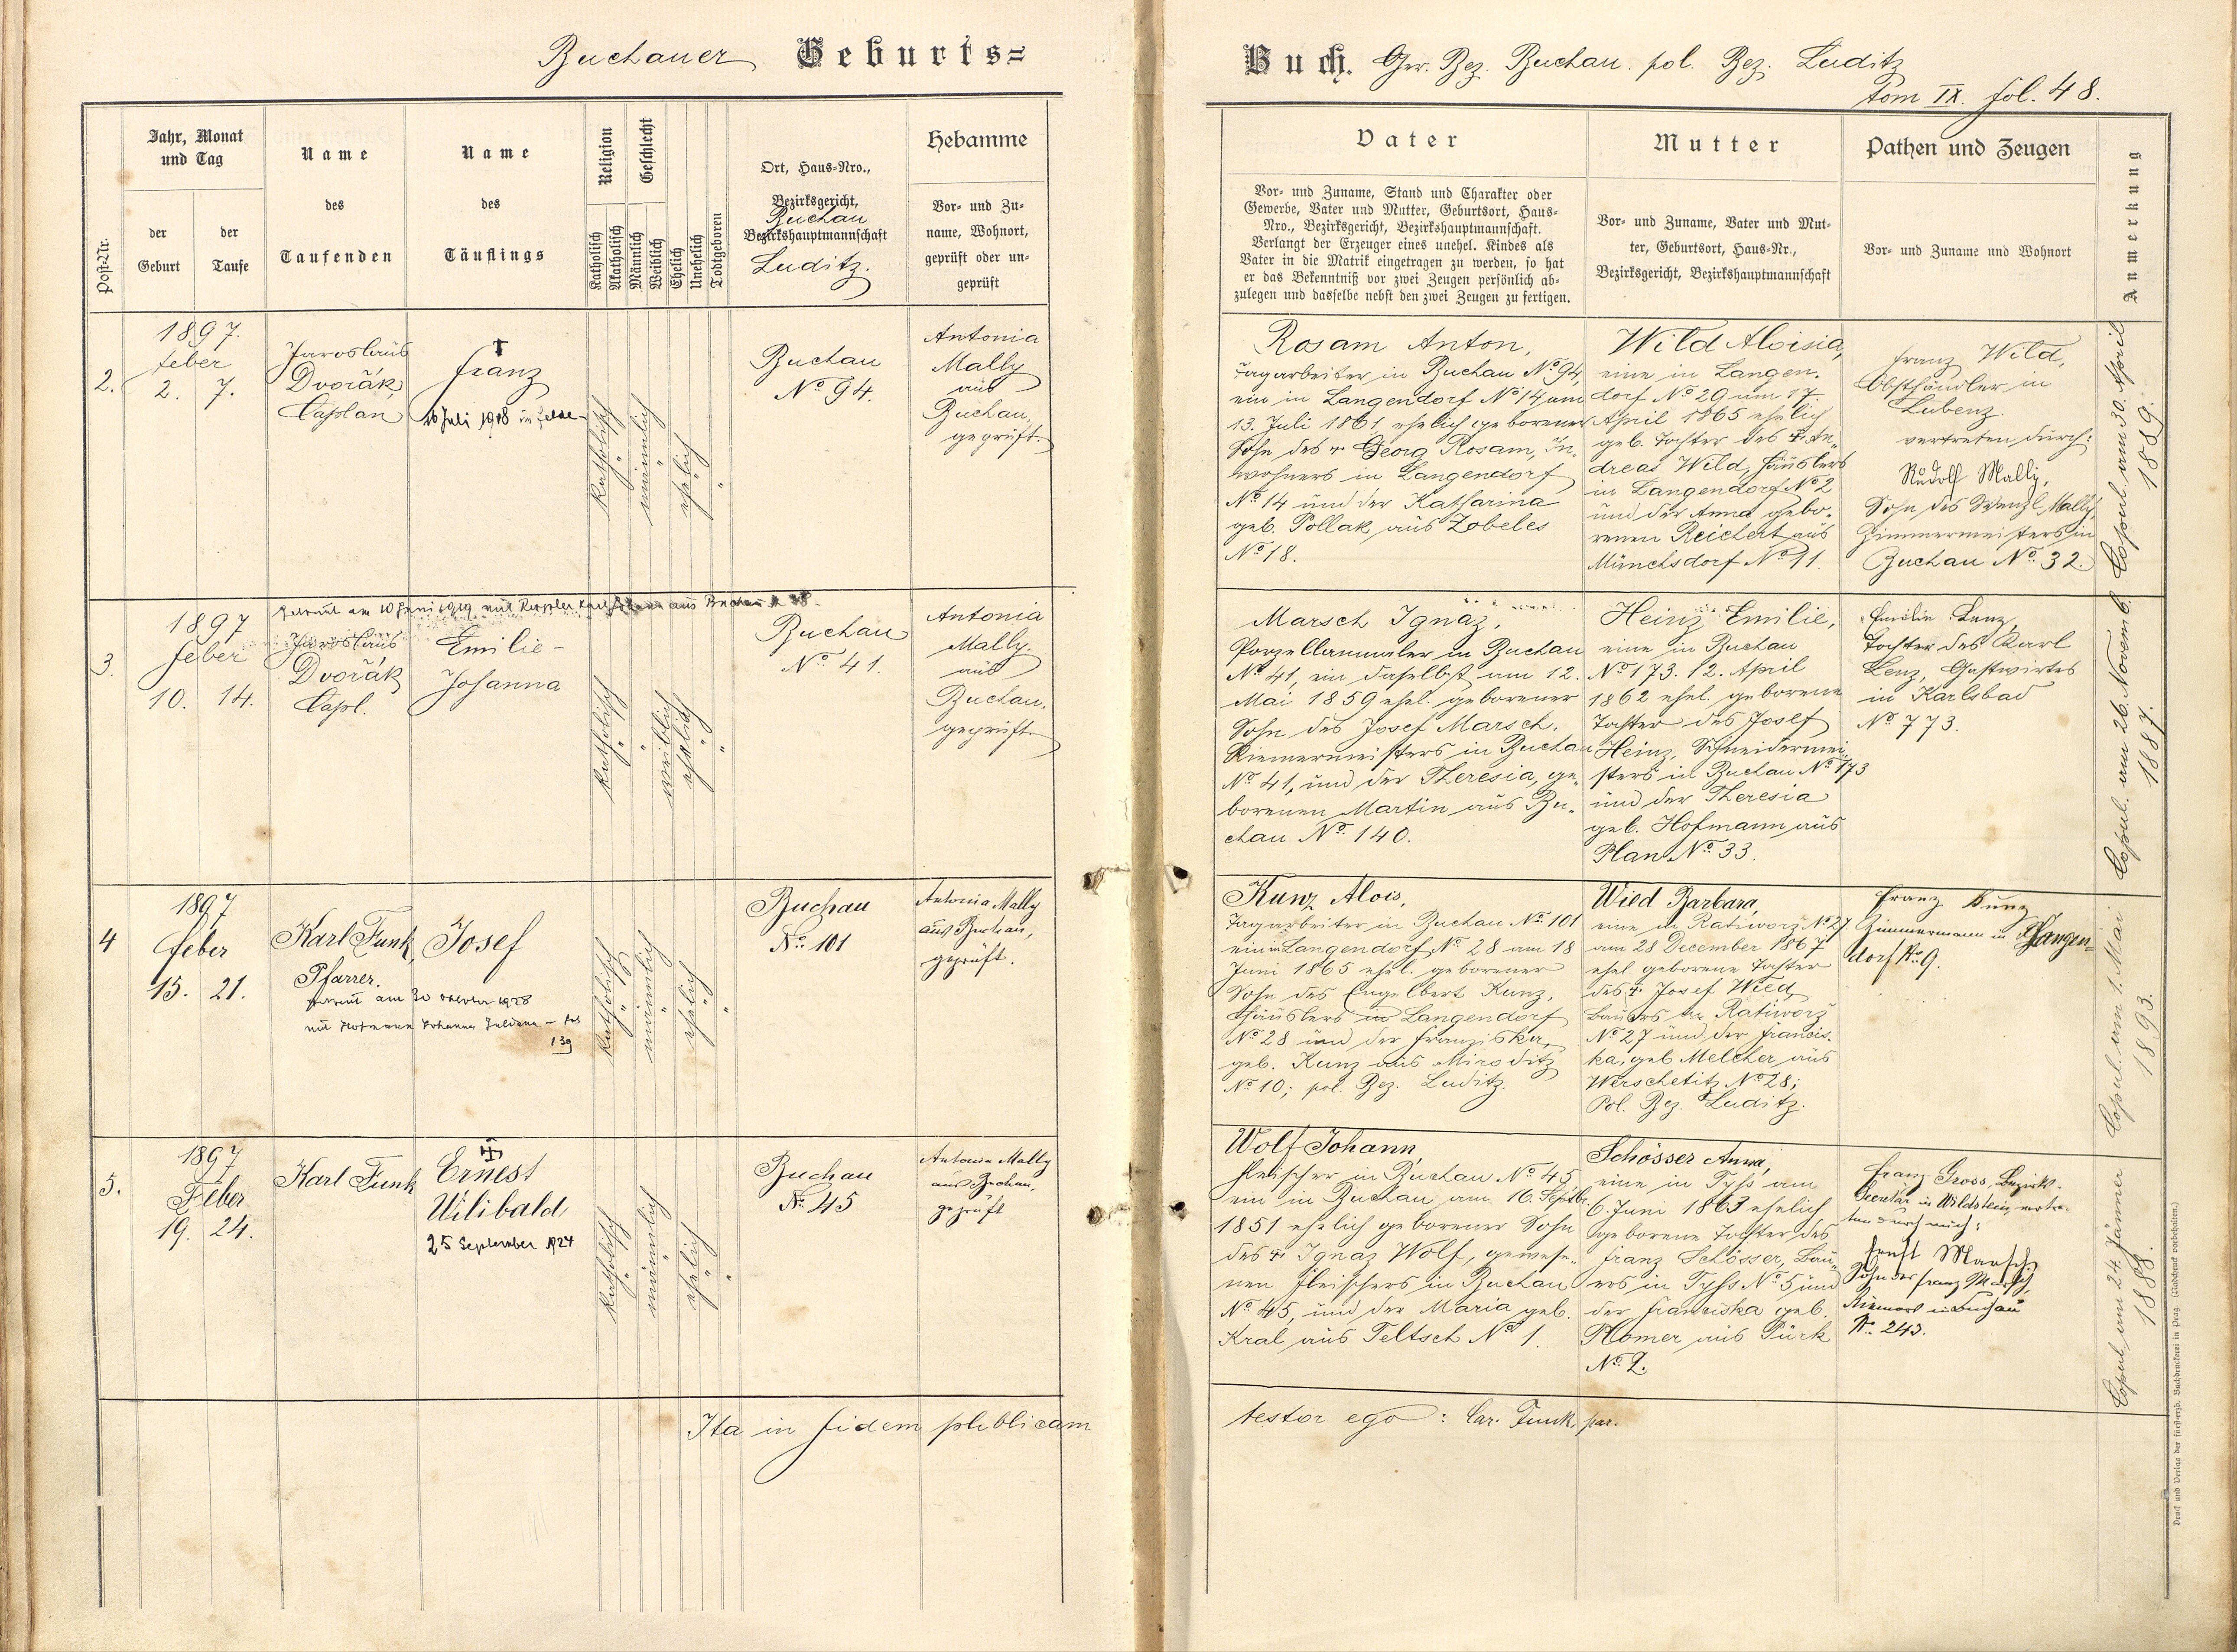 Buchauer Geburts=
Post-Nr.
Jahr, Monat
und Tag
der
Geburt
der
Taufe
Name
des
Taufenden
Name
des
Täuflings
Religion
Katholisch
Akatholisch
Geschlecht
Männlich
Weiblich
Ehelich
Unehelich
Todtgeboren
Ort, Haus-Nro.,
Bezirksgericht,
Buchau
Bezirkshauptmannschaft
Luditz.
Hebamme
Vor- und Zu-
name, Wohnort,
geprüft oder un-
geprüft
2.
1897.
feber
2. 7.
Jaroslaus
Dvořák,
Caplan
†
Franz
Juli 1918 in
katholisch
männlich
ehelich
Buchau
No 94.
Antonia
Mally
aus
Buchau,
geprüft.
3.
1897
feber
10. 14.
Getraut am 10 Juni 1919 mit aus Buchau
Jaroslaus
Dvořák
Capl.
Emilie-
Johanna
katholisch
weiblich
ehelich
Buchau
No 41.
Antonia
Mally.
aus
Buchau,
geprüft
4
1897
feber
15. 21.
Karl Funk,
Pfarrer.
Josef
getraut am 30 1928
mit Hofmann Johanna
139
katholisch
männlich
ehelich
Buchau
No 101
Antonia Mally
aus Buchau,
geprüft.
5.
1897
Feber
19. 24.
Karl Funk
Ernest
Wilibald
25 September 1924
katholisch
männlich
ehelich
Buchau
No 45
Antonia Mally
aus Buchau,
geprüft
Ita in fidem publicam
Buch. Ger. Bez. Buchau. pol. Bez. Luditz
tom IX. fol. 48.
Vater
Vor- und Zuname, Stand und Charakter oder
Gewerbe, Vater und Mutter, Geburtsort, Haus-
Nro., Bezirksgericht, Bezirkshauptmannschaft.
Verlangt der Erzeuger eines unehel. Kindes als
Vater in die Matrik eingetragen zu werden, so hat
er das Bekenntniß vor zwei Zeugen persönlich ab-
zulegen und dasselbe nebst den zwei Zeugen zu fertigen.
Mutter
Vor- und Zuname, Vater und Mut-
ter, Geburtsort, Haus-Nr.,
Bezirksgericht, Bezirkshauptmannschaft
Pathen und Zeugen
Vor- und Zuname und Wohnort
Anmerkung
Rosam Anton,
Tagarbeiter in Buchau No 94,
ein in Langendorf No 14 am
13. Juli 1861 ehelich geborener
Sohn des † Georg Rosam, In-
wohners in Langendorf
No 14 und der Katharina
geb. Pollak aus Zobeles
No 18.
Wild Aloisia,
eine in Langen-
dorf No 29 am 17.
April 1865 ehelich
geb. Tochter des † An-
dreas Wild, Häuslers
in Langendorf No 2
und der Anna gebo-
renen Reichert aus
Münchsdorf No 11.
Franz Wild,
Obsthändler in
Lubenz.
vertreten durch:
Rudolf Mally,
Sohn des Wenzl Mally,
Zimmermeisters in
Buchau No 32.
Copul. am 30. April
1889.
Marsch Ignaz,
Porzellanmaler in Buchau
No 41, ein daselbst am 12.
Mai 1859 ehel. geborener
Sohn des Josef Marsch,
Riemermeisters in Buchau
No 41, und der Theresia, ge-
borenen Martin aus Bu-
chau No 140.
Heinz Emilie,
eine in Buchau
No 173. 12. April
1862 ehel. geborene
Tochter des Josef
Heinz, Schneidermei-
sters in Buchau No 173
und der Theresia
geb. Hofmann aus
Plan No 33.
Emilie Lenz,
Tochter des Karl
Lenz, Gastwirtes
in Karlsbad
No 773.
Copul. am 26. Novemb.
1887.
Kunz Alois,
Tagarbeiter in Buchau No 101
ein in Langendorf No 28 am 18
Juni 1865 ehel. geborener
Sohn des Engelbert Kunz,
Häuslers in Langendorf
No 28 und der Franziska,
geb. Kunz aus Miroditz
No 10; pol. Bez. Luditz.
Wied Barbara,
eine in Ratiworz No 27
am 28 December 1867
ehel. geborene Tochter
des † Josef Wied,
Bauers in Ratiworz
No 27 und der Francis-
ka, geb. Melcher aus
Werschetitz No 28;
Pol. Bez. Luditz.
Franz Kunz
Zimmermann in Langen-
dorf No 9.
Copul. am 1. Mai
1893.
Wolf Johann,
Fleischer in Buchau No 45,
ein in Buchau am 16. Septbr
1851 ehelich geborener Sohn
des † Ignaz Wolf, gewese-
nen Fleischers in Buchau
No 45, und der Maria geb.
Kral aus Teltsch No 1.
Schösser Anna,
eine in Tyss am
6. Juni 1863 ehelich
geborene Tochter des
Franz Schösser, Bau-
ers in Tyss No 5 und
der Franciska geb.
Plomer aus Pürk
No 2.
Franz Gross, Bezirks-
Secretär in Wildstein, vertre-
ten durch mich:
Ernst Marsch
Sohn des Franz Marsch,
Riemers in Buchau
No 243.
Copul. am 24. Jänner
1888.
testor ego: Car. Funk, par.
Druck und Verlag der fürst-erzb. Buchdruckerei in Prag. (Nachdruck vorbehalten.)